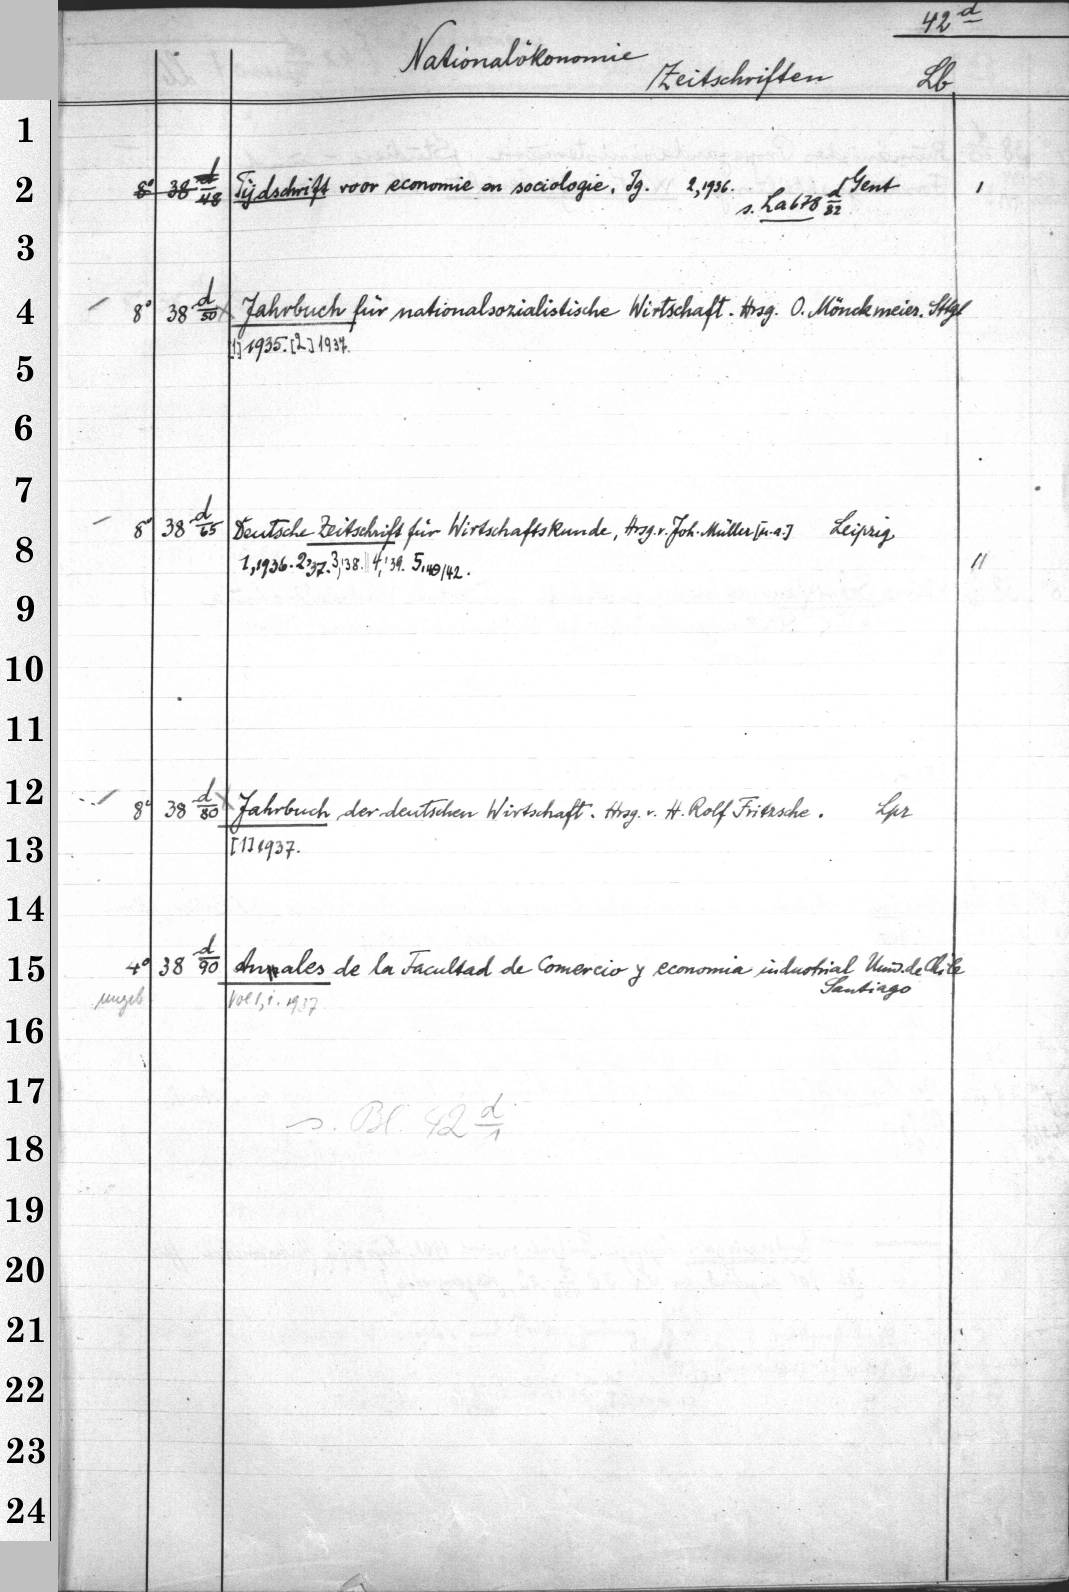 42 d
Nationalökonomie
Zeitschriften Lb
1
2 8° 38 d/48 Tijdschrift voor economie en sociologie, Jg. 2, 1936. Gent 1
s. La 678 d/82
3
4 8° 38 d/50 Jahrbuch für nationalsozialistische Wirtschaft. Hrsg. O. Mönckmeier. Sttgt
[1] 1935. [2] 1937.
5
6
7
8° 38 d/65 Deutsche Zeitschrift für Wirtschaftskunde, Hrsg. v. Joh. Müller [u. a.] Leipzig
8 1, 1936. 2, '37. 3, '38. 4, '39. 5, 40/42. 11
9
10
11
12 8° 38 d/80 Jahrbuch der deutschen Wirtschaft. Hrsg. v. H. Rolf Fritzsche. Lpz
13 [1] 1937.
14
15 4° 38 d/90 Annales de la Facultad de Comercio y economia industrial Univ. de Chile
Santiago
ungeb Vol 1, 1. 1937
16
17
s. Bl. 42 d/1
18
19
20
21
22
23
24